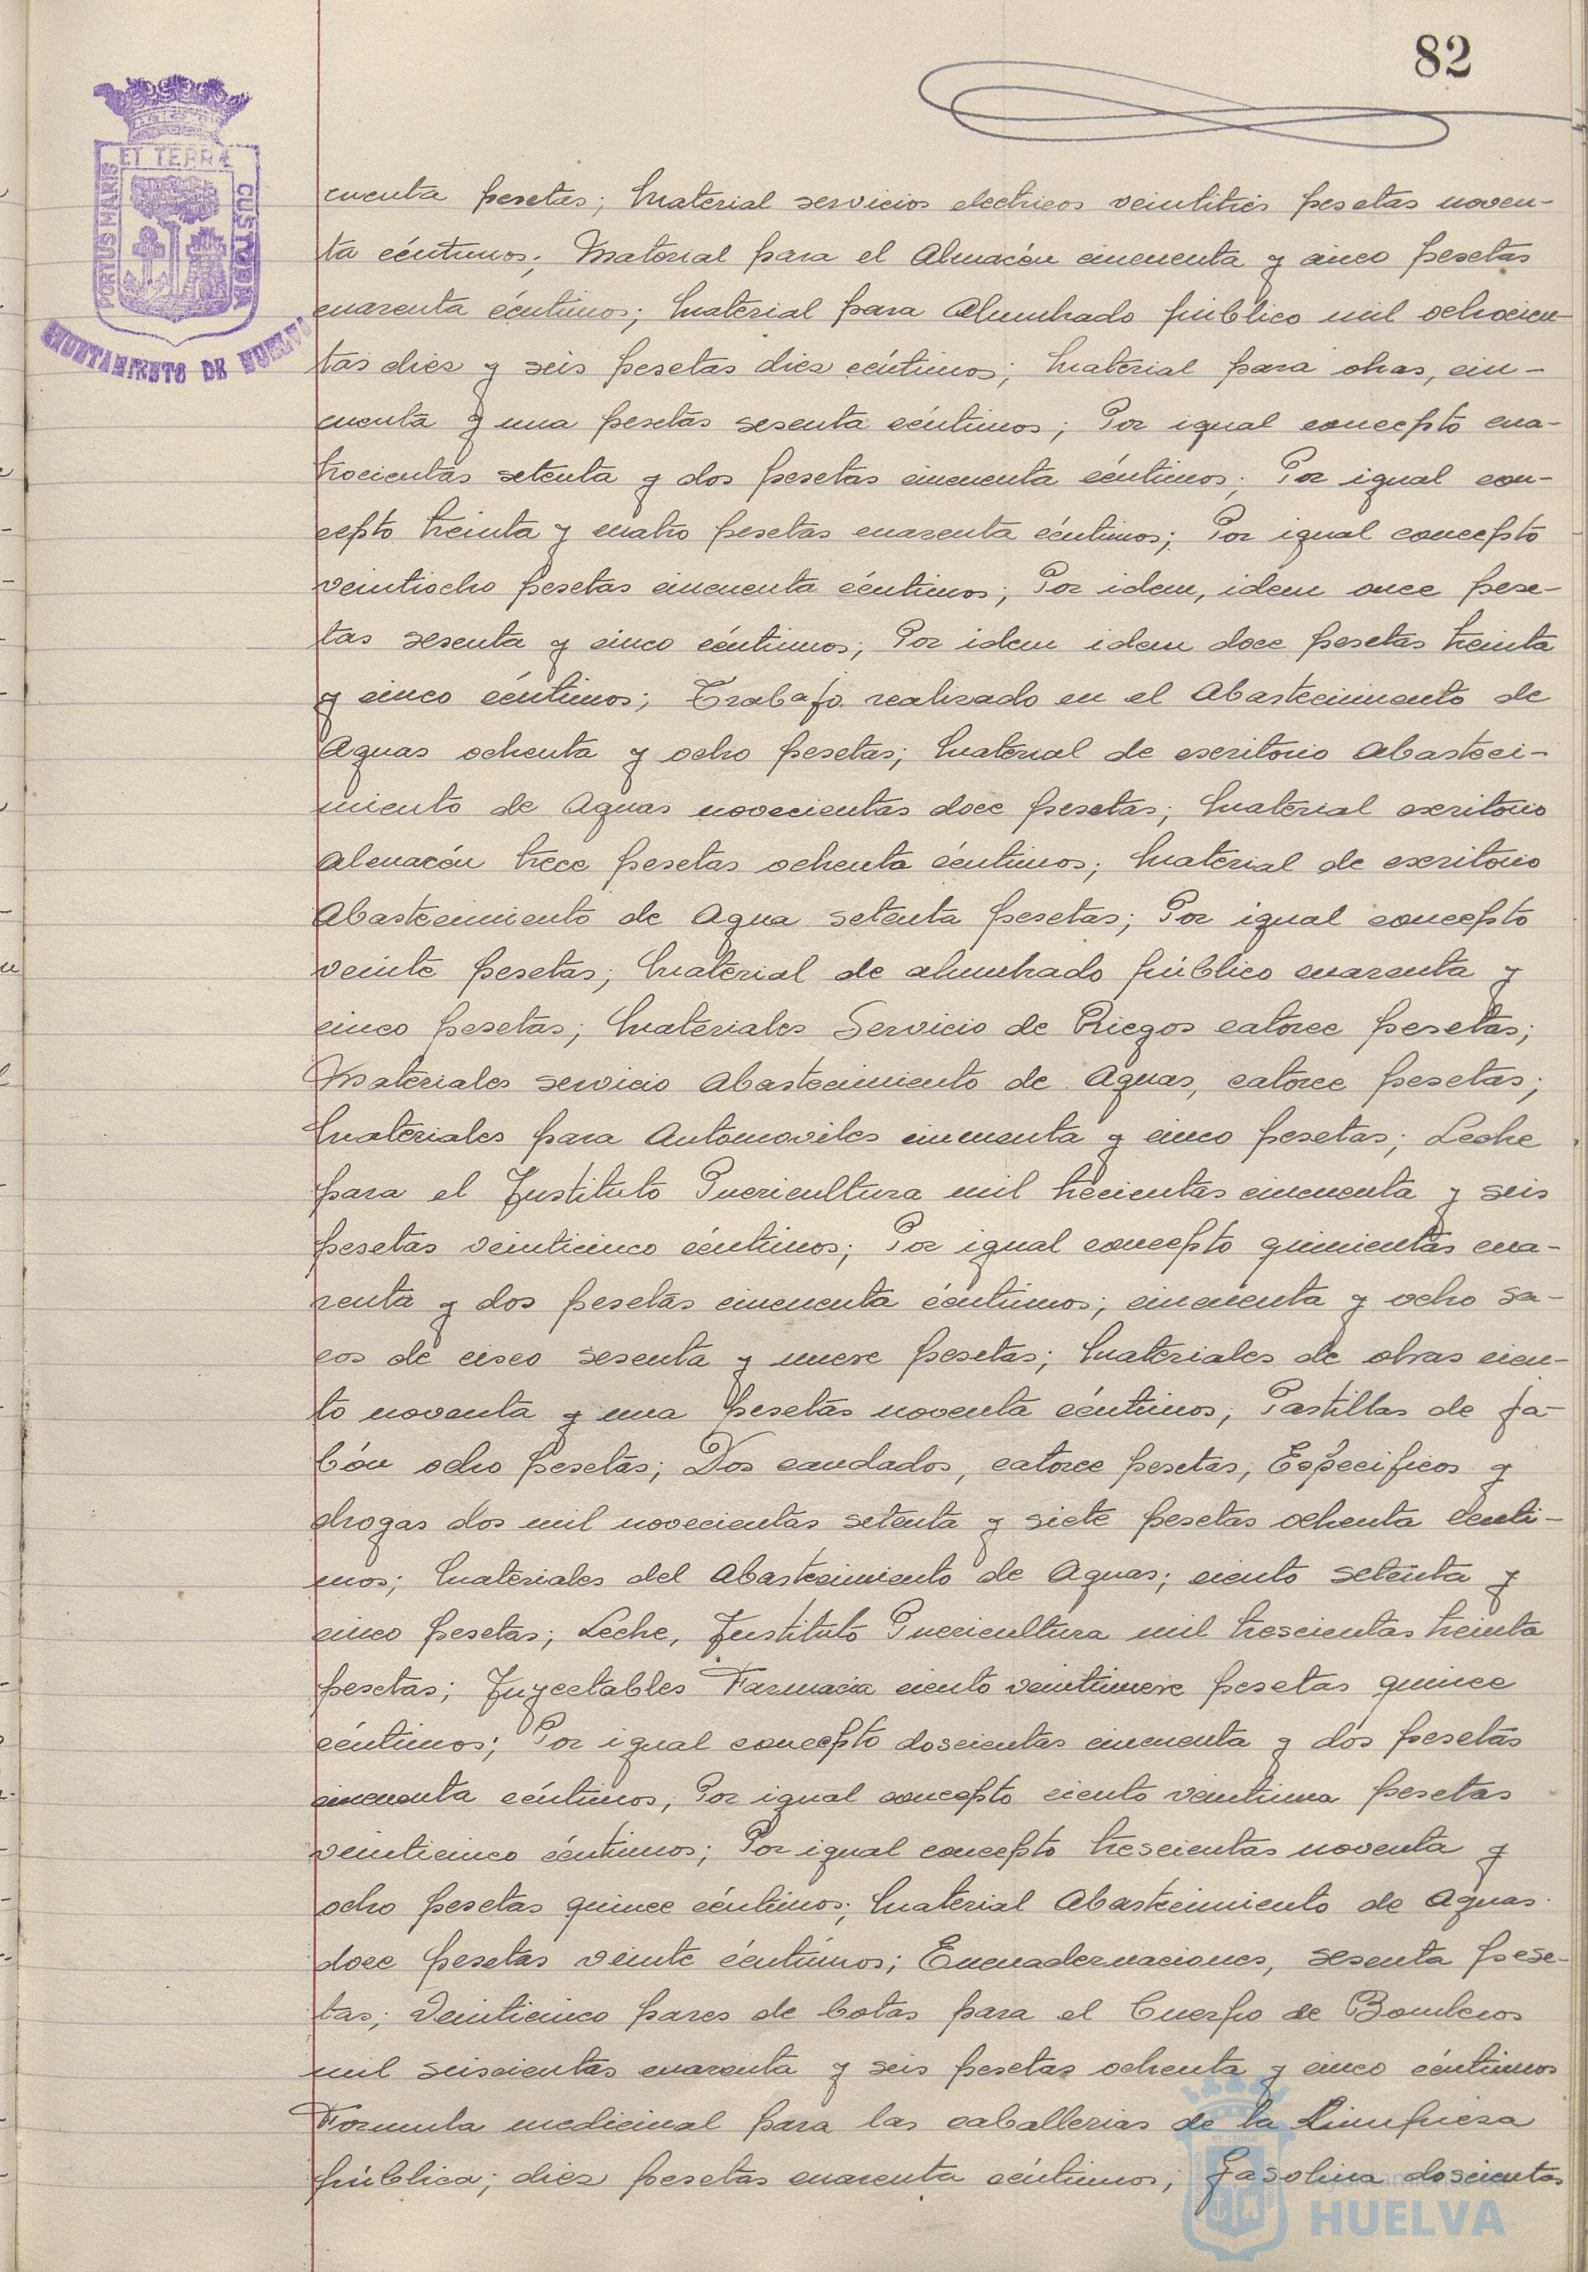 82
ET TERRÆ
PORTUS MARIS
CUSTODIA
AYUNTAMIENTO DE HUELVA
cuenta pesetas; Material servicios electricos veintitrés pesetas noven-
ta céntimos; Material para el Almacén cincuenta y cinco pesetas
cuarenta céntimos; Material para Alumbrado público mil ochocien-
tas diez y seis pesetas diez céntimos; Material para obras, cin-
cuenta y una pesetas sesenta céntimos; Por igual concepto cua-
trocientas setenta y dos pesetas cincuenta céntimos; Por igual con-
cepto treinta y cuatro pesetas cuarenta céntimos; Por igual concepto
veintiocho pesetas cincuenta céntimos; Por idem, idem once pese-
tas sesenta y cinco céntimos; Por idem idem doce pesetas treinta
y cinco céntimos; Trabajo realizado en el Abastecimiento de
Aguas ochenta y ocho pesetas; Material de escritorio Abasteci-
miento de Aguas novecientas doce pesetas; Material escritorio
Almacén trece pesetas ochenta céntimos; Material de escritorio
Abastecimiento de Agua setenta pesetas; Por igual concepto
veinte pesetas; Material de alumbrado público cuarenta y
cinco pesetas; Materiales Servicio de Riegos catorce pesetas;
Materiales servicio Abastecimiento de Aguas, catorce pesetas;
Materiales para Automoviles cincuenta y cinco pesetas; Leche
para el Instituto Puericultura mil trecientas cincuenta y seis
pesetas veinticinco céntimos; Por igual concepto quinientas cua-
renta y dos pesetas cincuenta céntimos; cincuenta y ocho sa-
cos de cisco sesenta y nueve pesetas; Materiales de obras cien-
to noventa y una pesetas noventa céntimos; Pastillas de ja-
bón ocho pesetas; Dos candados, catorce pesetas; Especificos y
drogas dos mil novecientas setenta y siete pesetas ochenta centi-
mos; Materiales del Abastecimiento de Aguas; ciento setenta y
cinco pesetas; Leche, Instituto Puericultura mil trescientas treinta
pesetas; Inyectables Farmacia ciento veintinueve pesetas quince
céntimos; Por igual concepto doscientas cincuenta y dos pesetas
cincuenta céntimos; Por igual concepto ciento veintiuna pesetas
veinticinco céntimos; Por igual concepto trescientas noventa y
ocho pesetas quince céntimos; Material Abastecimiento de Aguas
doce pesetas veinte céntimos; Encuadernaciones, sesenta pese-
tas; Veinticinco pares de botas para el Cuerpo de Bomberos
mil seiscientas cuarenta y seis pesetas ochenta y cinco céntimos
Formula medicinal para las caballerias de la Limpieza
pública; diez pesetas cuarenta céntimos; Gasolina doscientas
Ayuntamiento de
HUELVA